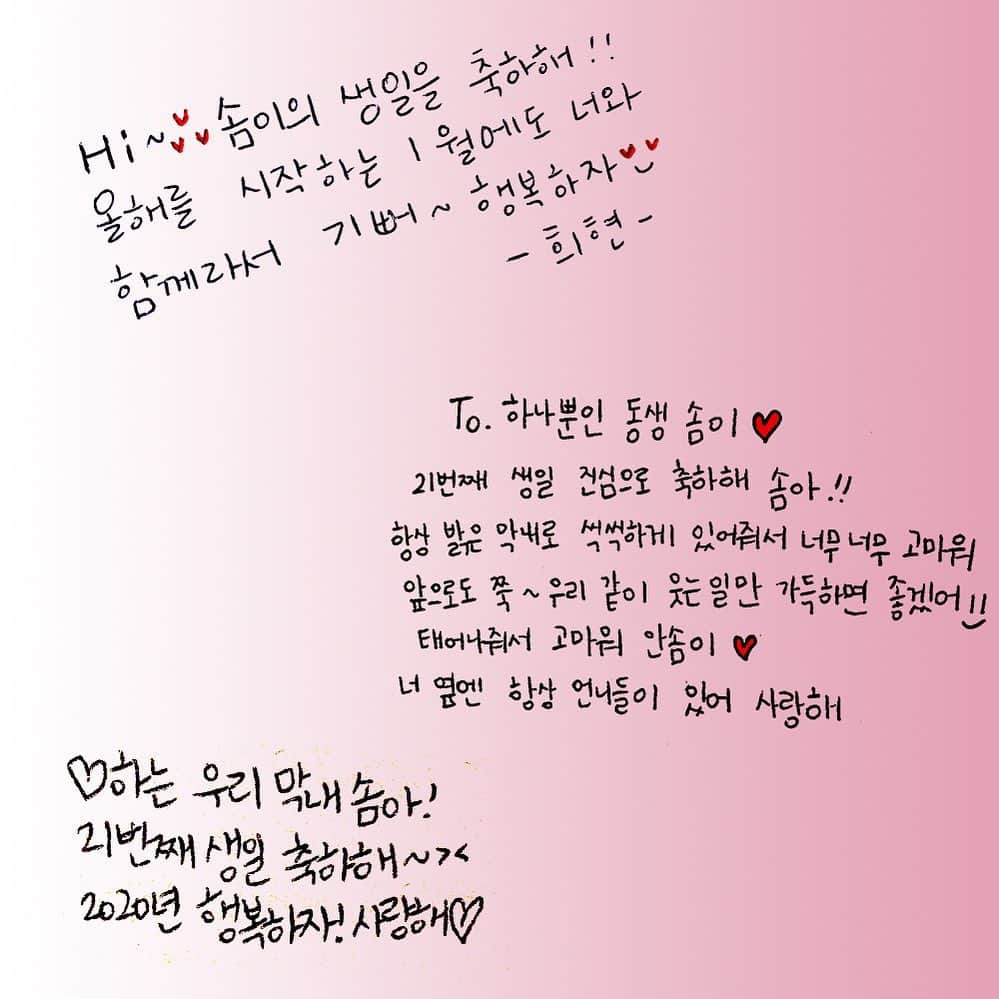 Hi~♥♥♥솜이의 생일을 축하해!!
올해를 시작하는 1월에도 너와
함께라서 기뻐~ 행복하자♥♥
- 희현 -
To. 하나뿐인 동생 솜이♥
21번째 생일 진심으로 축하해 솜아!!
항상 밝은 막내로 씩씩하게 있어줘서 너무너무 고마워
앞으로도 쭉~우리 같이 웃는일만 가득하면 좋겠어!!
태어나줘서 고마워 안솜이 ♥
너 옆엔 항상 언니들이 있어 사랑해
♡하는 우리 막내솜아!
21번째 생일 축하해~><
2020년 행복하자! 사랑해♡